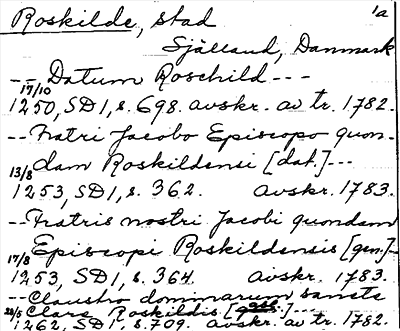 Roskilde, stad 1a
Själland, Danmark
-- Datum Roschild ---
17/10
1250, SD1, s. 698. avskr. av tr. 1782.
-- Fratri Jacobo Episcopo quon-
dam Roskildensi [dat.] ---
13/8
1253, SD1, s. 362. Avskr. 1783.
-- Fratris nostri Jacobi quondam
Episcopi Roskildensis [gen.]-
17/8
1253, SD1, s. 364. Avskr. 1783.
-- Claustro dominarum sancte
Clare Roskildis ----
1262, SD1, s. 709. avskr. av tr. 1782.